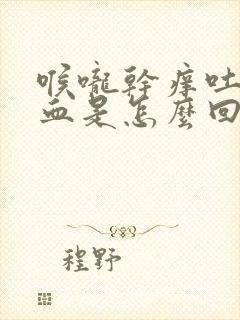 喉嚨幹癢吐
血是怎麼回
程野